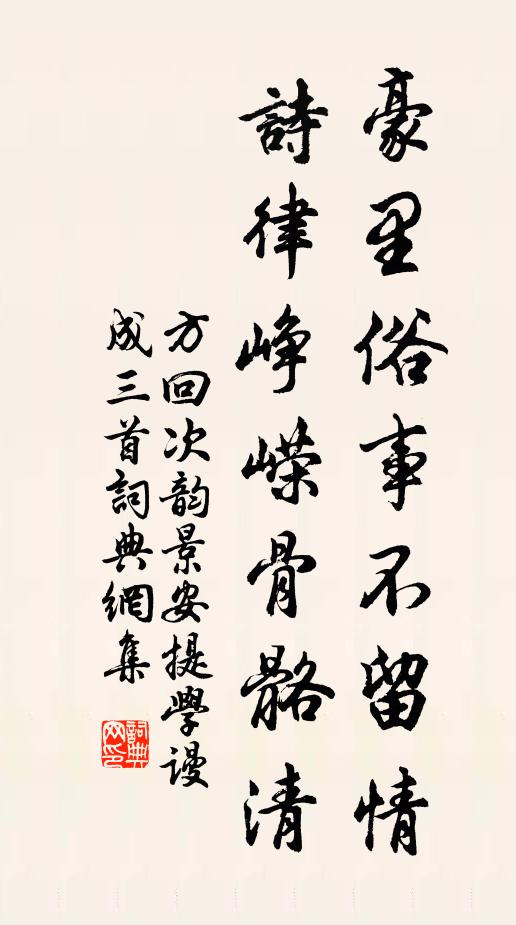 豪里俗事不留情
詩律峥嵘骨骼清
方回次韵景安提學谩
成三首詞典網集
詞典
网印